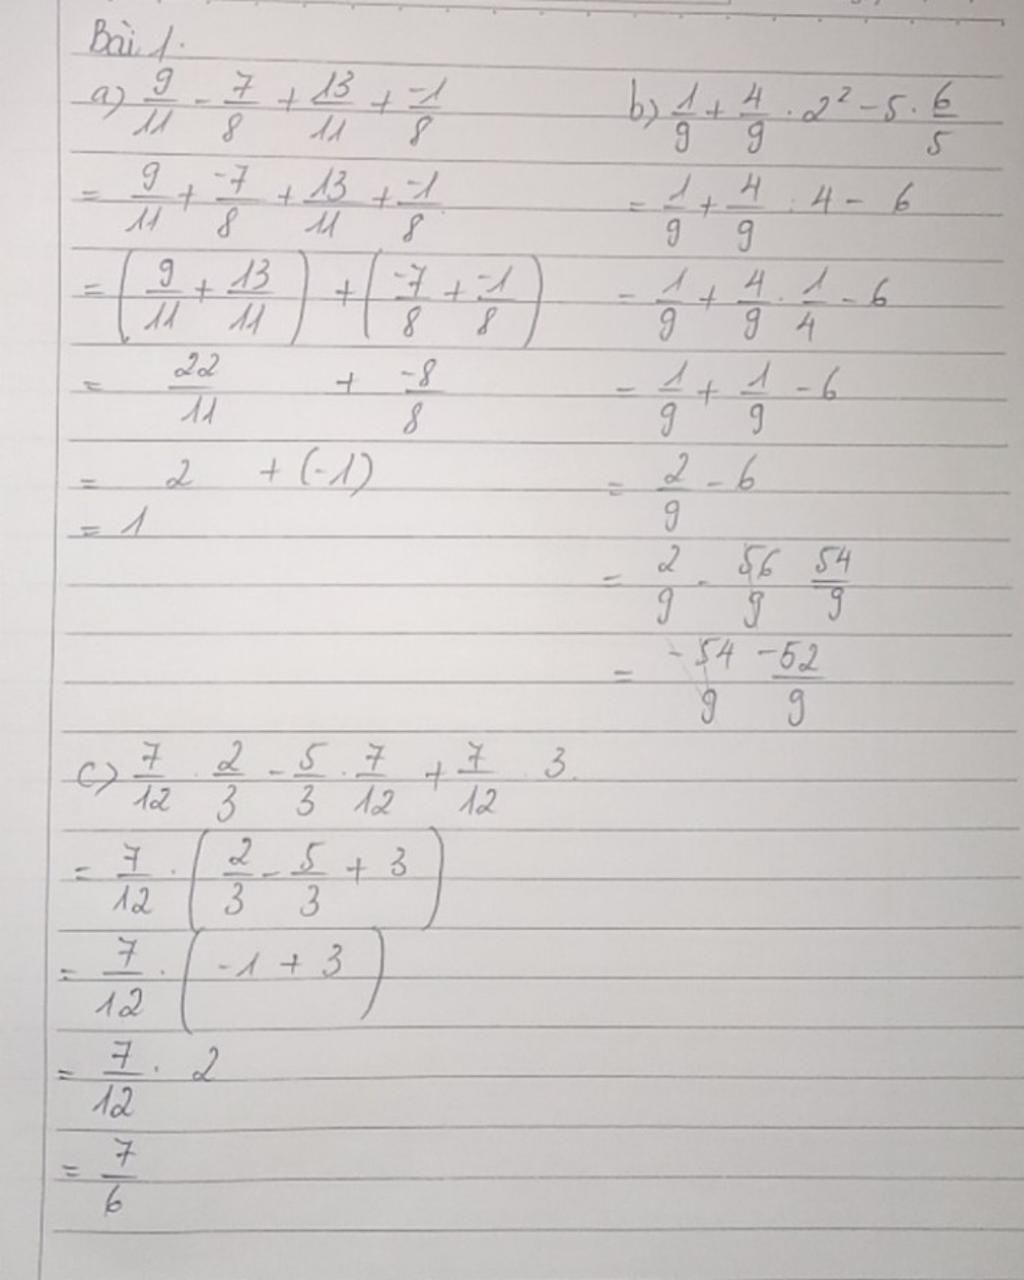 Bài 1.
a) 9/11 - 7/8 + 13/11 + -1/8
= 9/11 + -7/8 + 13/11 + -1/8
= (9/11 + 13/11) + (-7/8 + -1/8)
= 22/11 + -8/8
= 2 + (-1)
= 1
b) 1/9 + 4/9 : 2² - 5 . 6/5
= 1/9 + 4/9 : 4 - 6
= 1/9 + 4/9 . 1/4 - 6
= 1/9 + 1/9 - 6
= 2/9 - 6
= 2/9 - 56/9 54/9
= -54/9 -52/9
c) 7/12 . 2/3 - 5/3 . 7/12 + 7/12 . 3.
= 7/12 . (2/3 - 5/3 + 3)
= 7/12 . (-1 + 3)
= 7/12 . 2
= 7/6